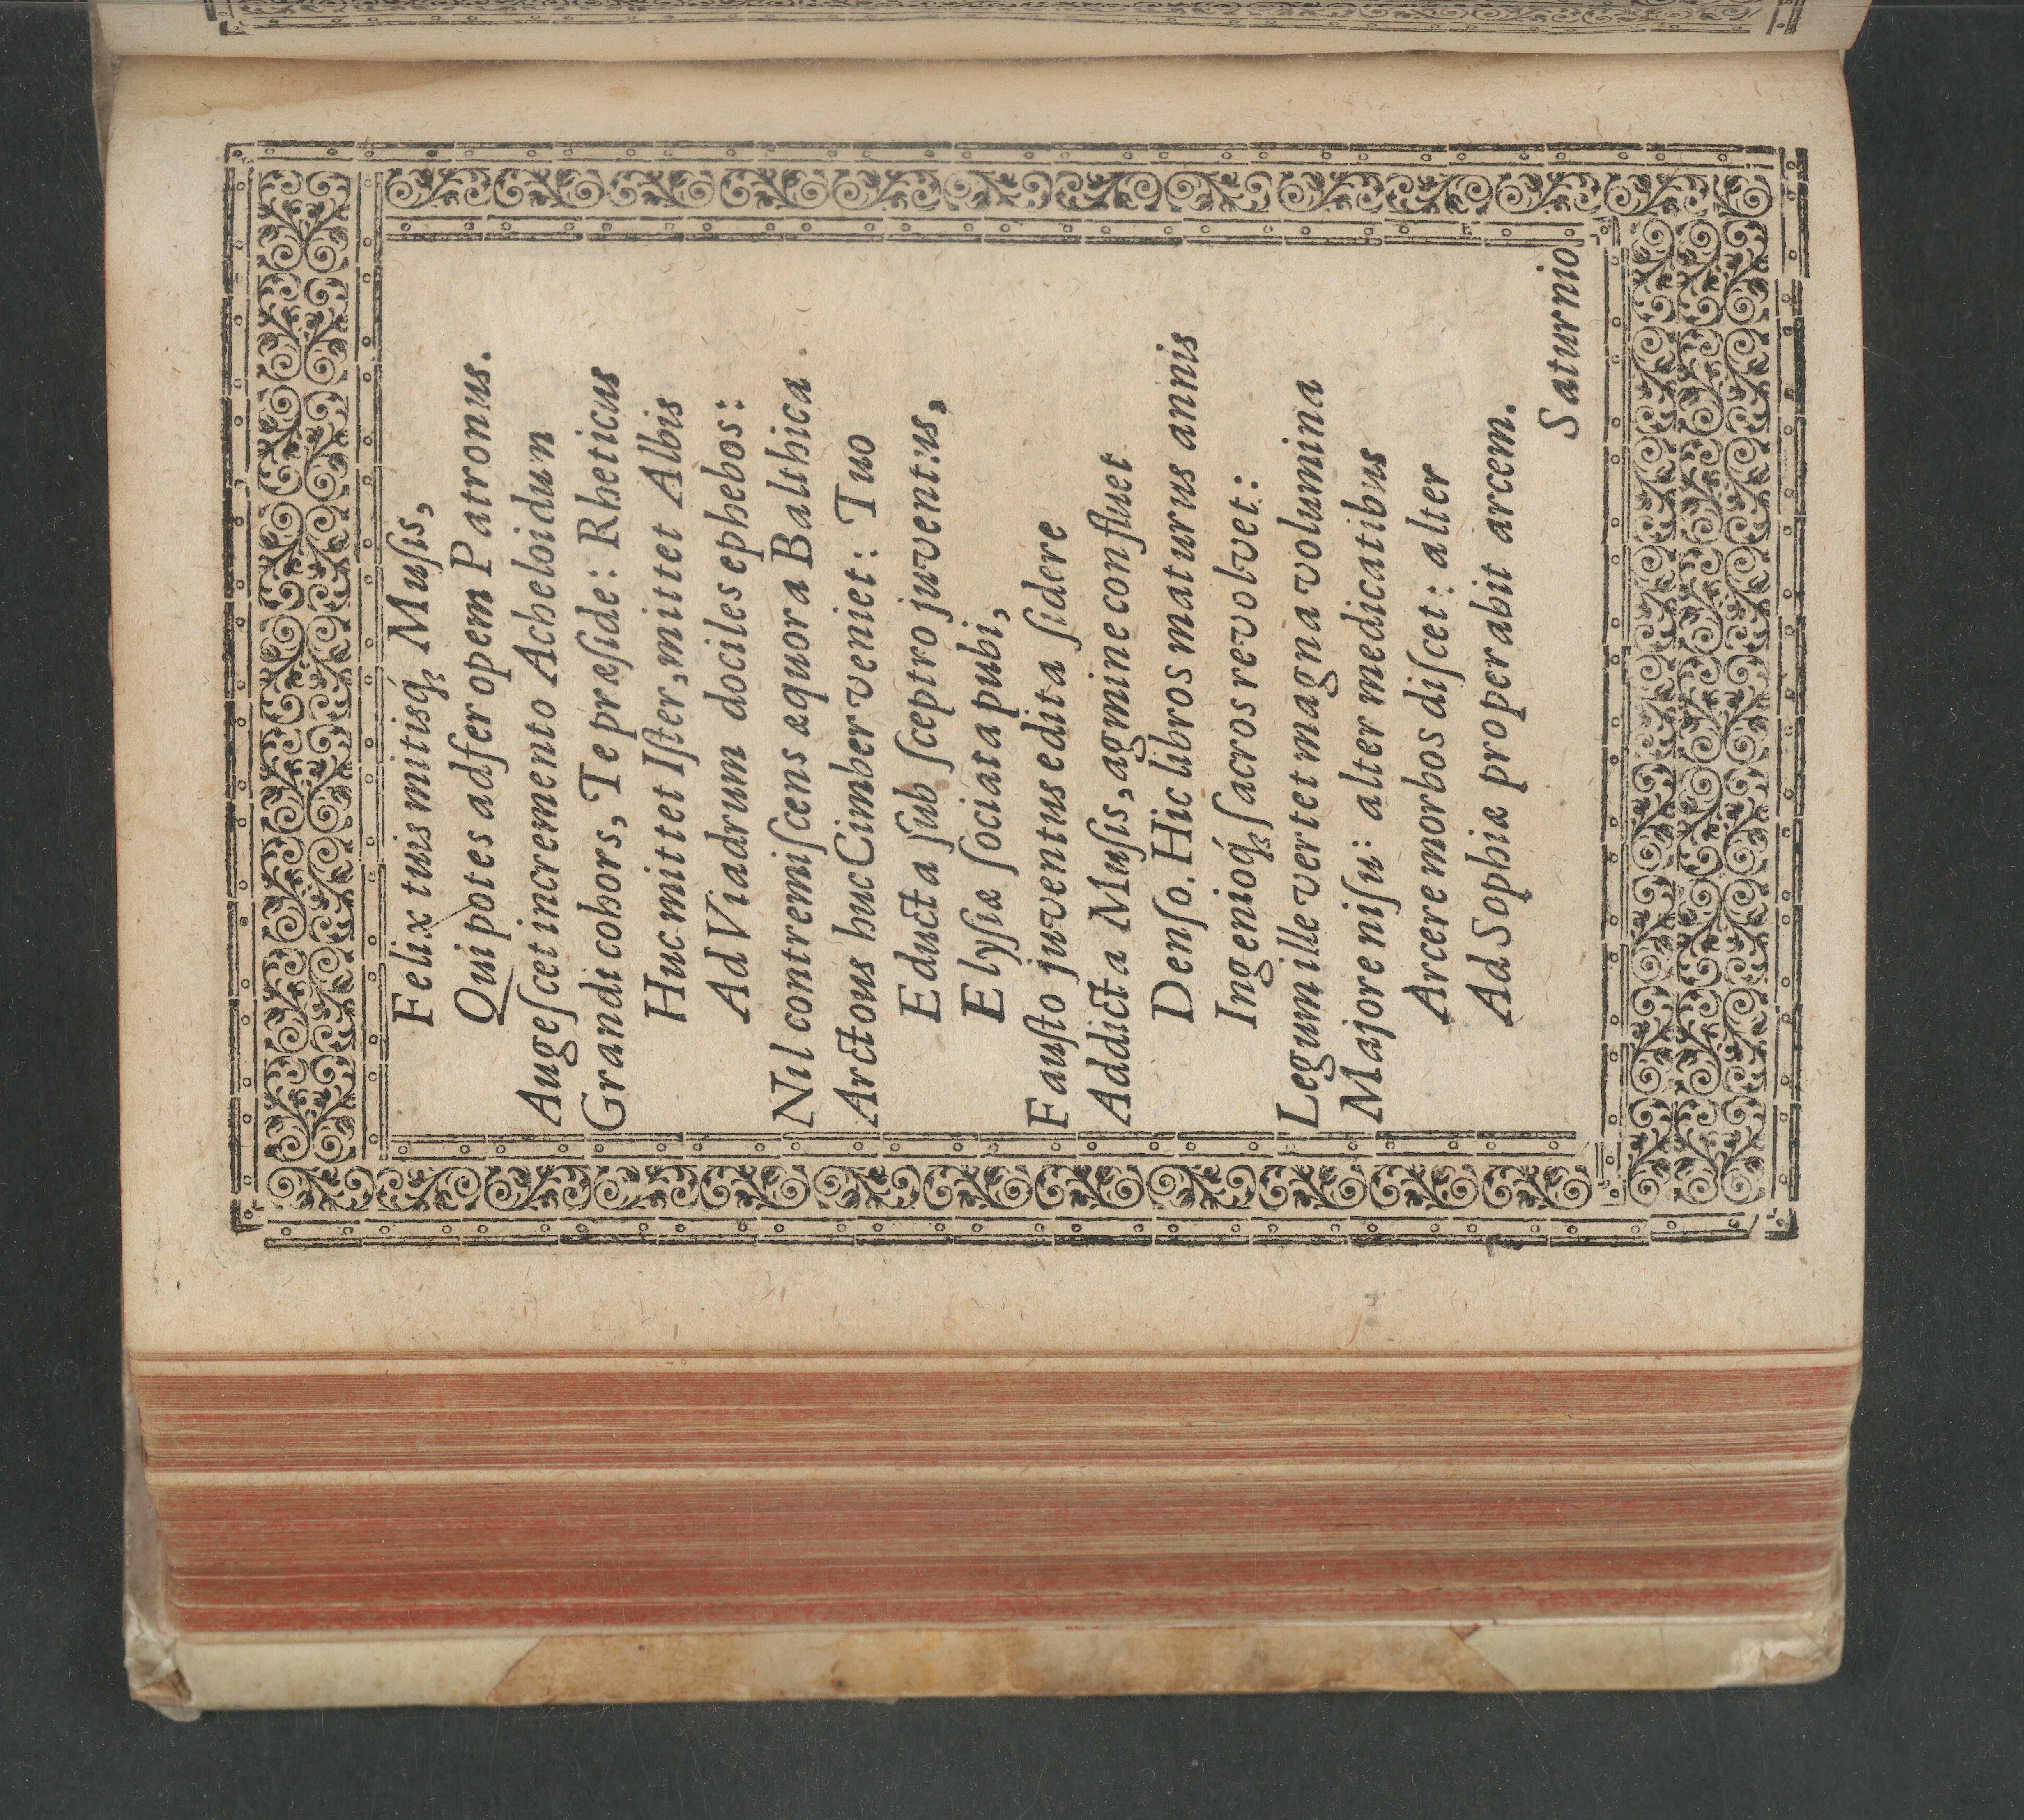 Felix tuis mitisq́;, Muſis,
Qui potes adfer opem Patronus.
Augeſcet incremento Acheloidum
Grandi cohors, Te præſide: Rheticus
Huc mittet Iſter, mittet Albis
Ad Viadrum dociles ephebos:
Nil contremiſcens æquora Balthica
Arctous huc Cimber veniet: Tuo
Educta ſub ſceptro juventus,
Elyſiæ ſociata pubi,
Fauſto juventus edita ſidere
Addicta Muſis, agmine confluet
Denſo. Hic libros maturus annis
Ingenioq́; ſacros revolvet:
Legum ille vertet magna volumina
Majore niſu: alter medicatibus
Arcere morbos diſcet: alter
Ad Sophiæ properabit arcem.
Saturnio